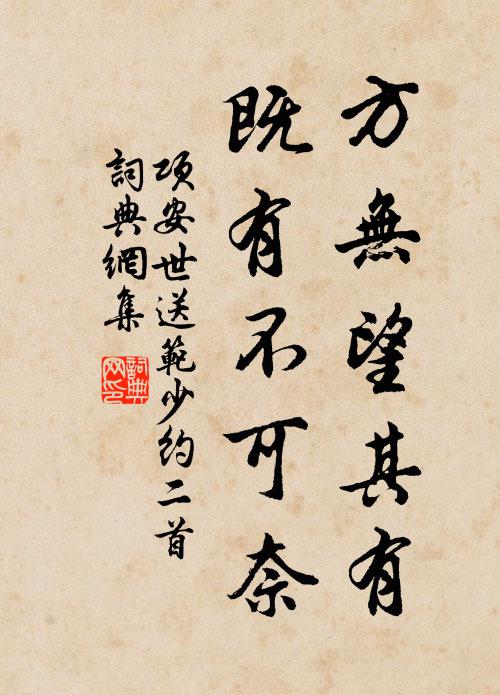 方無望其有
既有不可奈
項安世送範少約二首
詞典網集
詞典
网印